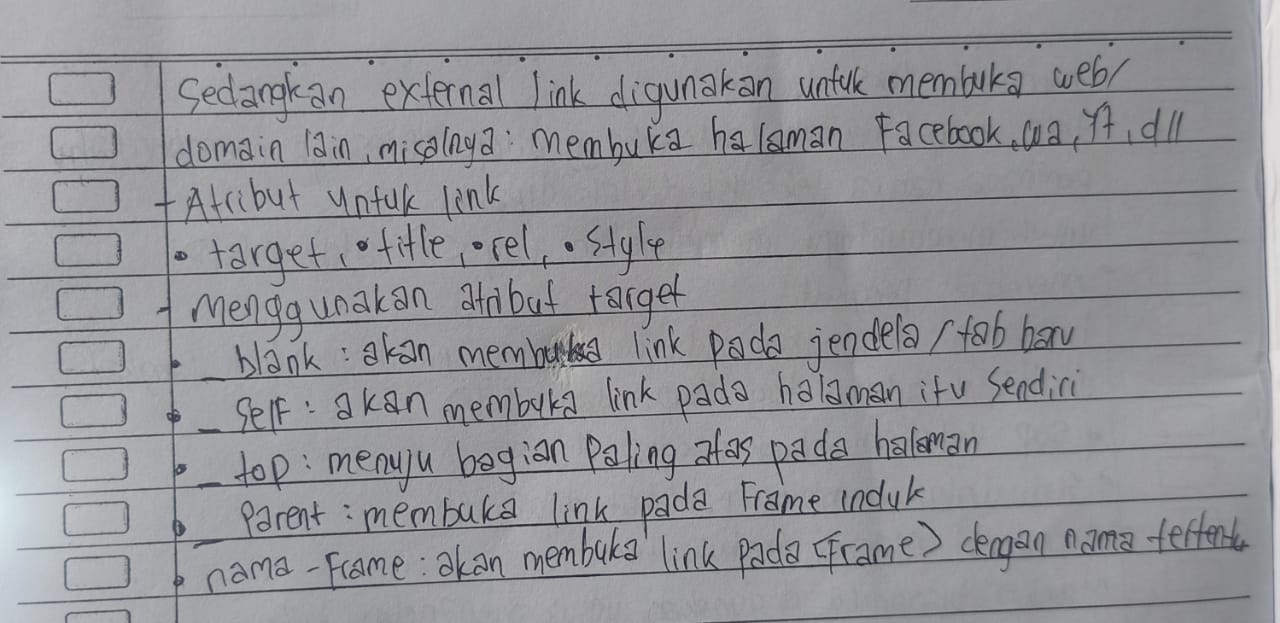 Sedangkan external link digunakan untuk membuka web/
domain lain, misalnya: membuka halaman Facebook, wa, Yt, dll
- Atribut untuk link
• target, • title, • rel, • Style
- Menggunakan atribut target
• _ blank : akan membuka link pada jendela / tab baru
• _ Self : akan membuka link pada halaman itu Sendiri
• _ top : menuju bagian Paling atas pada halaman
• _ Parent : membuka link pada Frame induk
• nama - Frame : akan membuka link pada <Frame> dengan nama tertentu